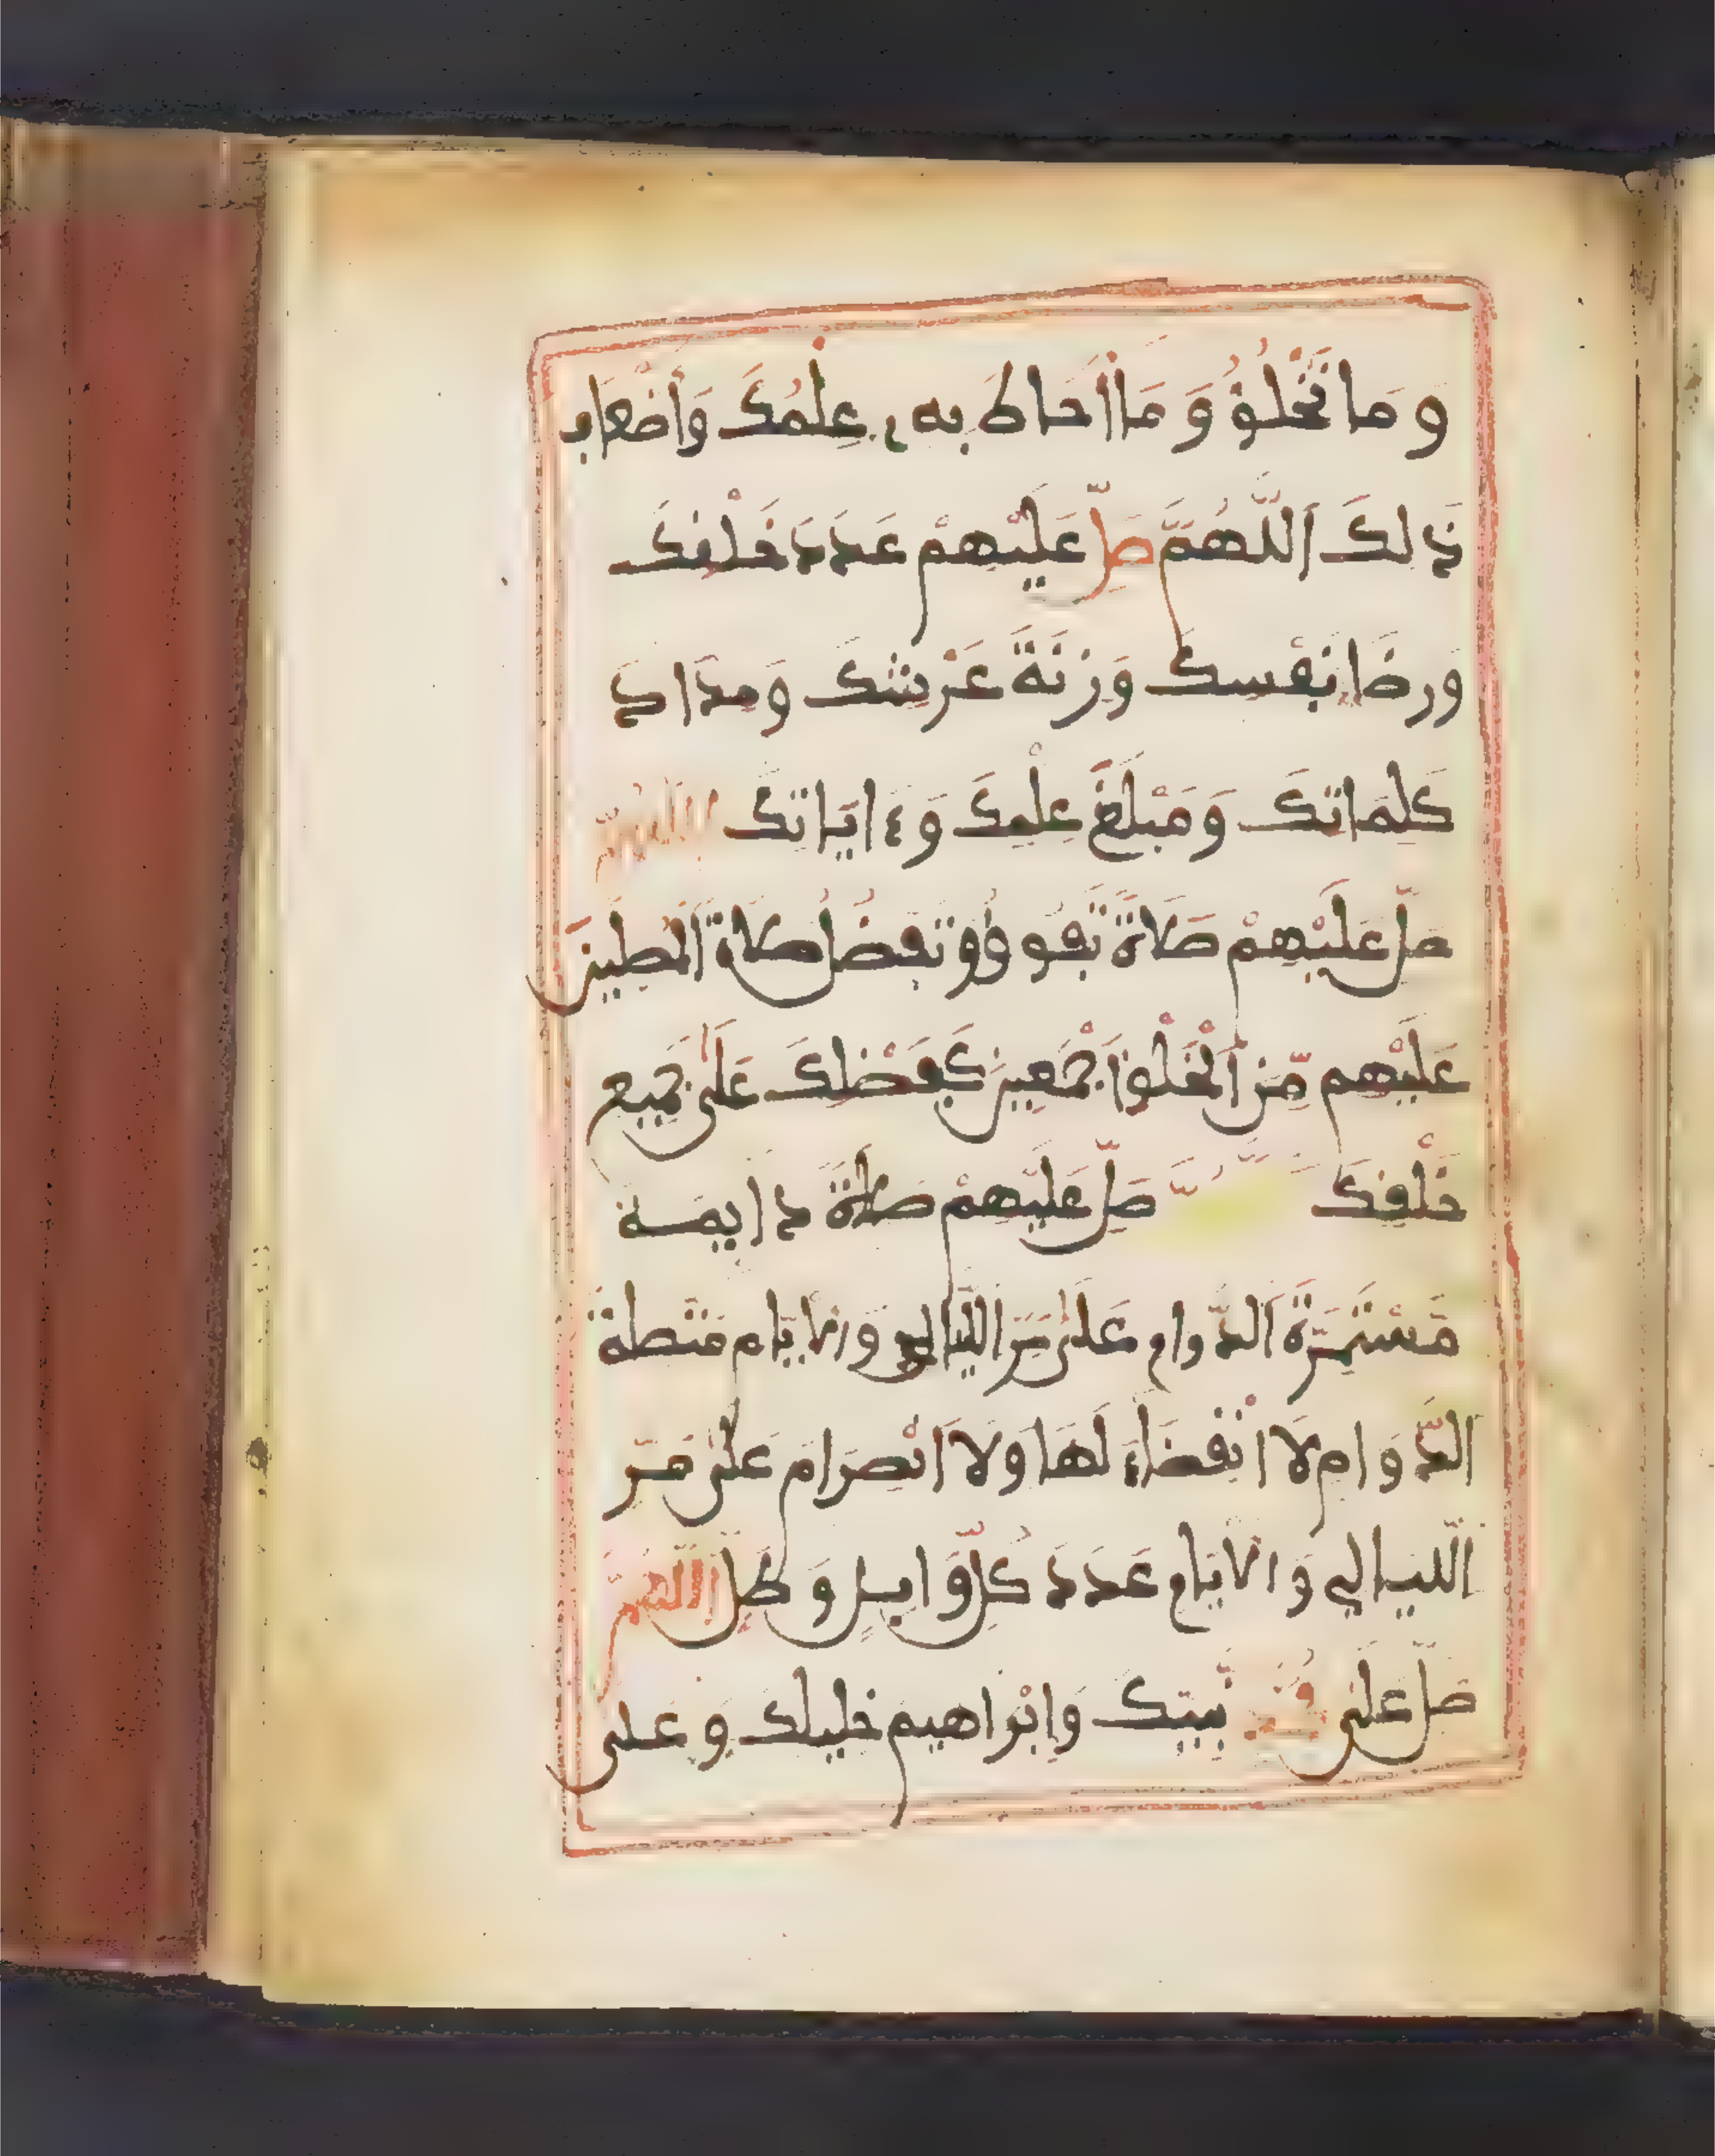 وَمَا تَخْلُقُ وَمَا أَحَاطَ بِهِ عِلْمُكَ وَأَضْعَافَ
ذَلِكَ اَللَّهُمَّ صَلِّ عَلَيْهِمْ عَدَدَ خَلْقِكَ
وَرِضَا نَفْسِكَ وَزِنَةَ عَرْشِكَ وَمِدَادَ
كَلِمَاتِكَ وَمَبْلَغَ عِلْمِكَ وَءَايَاتِكَ اللَّهُمَّ
صَلِّ عَلَيْهِمْ صَلَاةً تَفُوقُ وَتَفْضُلُ صَلَاةَ الْمُصَلِّينَ
عَلَيْهِمْ مِّنَ اَلْخَلْقِ أَجْمَعِينَ كَفَضْلِكَ عَلَى جَمِيعِ
خَلْقِكَ صَلِّ عَلَيْهِمْ صَلَاةً دَايِمَةً
مُسْتَمِرَّةَ اَلدَّوَامِ عَلَى مَرِّ اللَّيَالِي وَالْأَيَّامِ مُتَّصِلَةَ
الدَّوَامِ لَا انْقِضَاءَ لَهَا وَلَا انْصِرَامَ عَلَى مَرِّ
اللَّيَالِي وَالْأَيَّامِ عَدَدَ كُلِّ وَابِلٍ وَطَلٍّ اَللَّهُمَّ
صَلِّ عَلَى مُحَمَّدٍ نَّبِيِّكَ وَإِبْرَاهِيمَ خَلِيلِكَ وَعَلَى